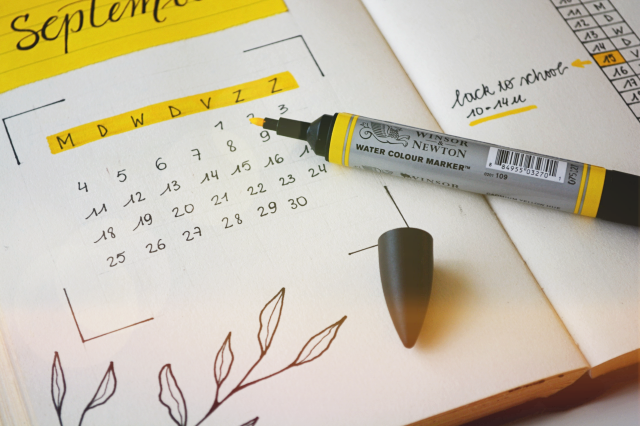 September
M D W D V Z Z
1 2 3
4 5 6 7 8 9
11 12 13 14 15 16
18 19 20 21 22 23 24
25 26 27 28 29 30
WINSOR & NEWTON
WATER COLOUR MARKER™
WINSOR
109
84955 03270
back to school
10-14u
11 M
12 D
13 W
14 D
15
16 Z
17